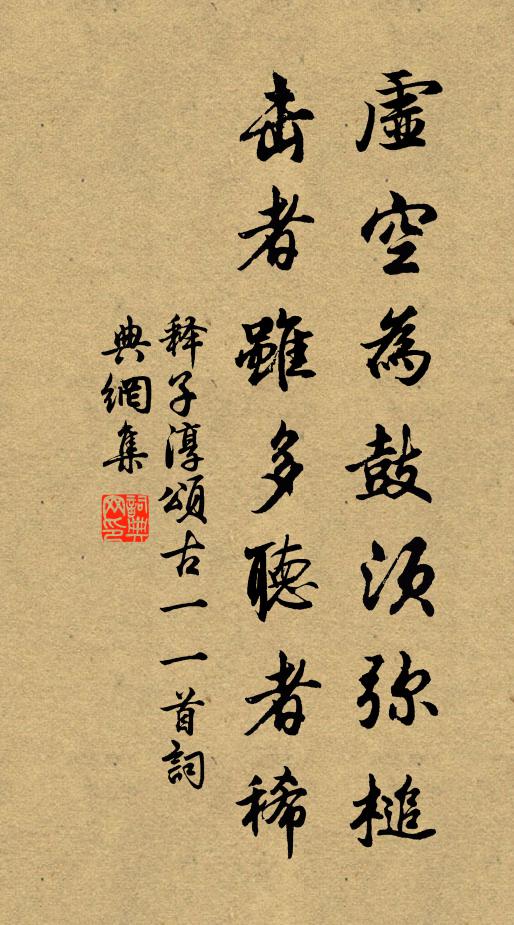 虛空為鼓須弥槌
击者雖多聽者稀
释子淳頌古一一首詞
典網集
詞典网印